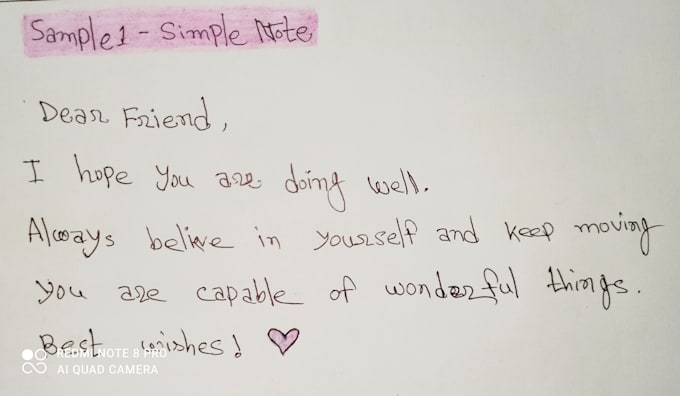 Sample1 - Simple Note
Dear Friend,
I hope you are doing well.
Always belive in yourself and keep moving
you are capable of wonderful things.
Best wishes! ♡
REDMI NOTE 8 PRO
AI QUAD CAMERA